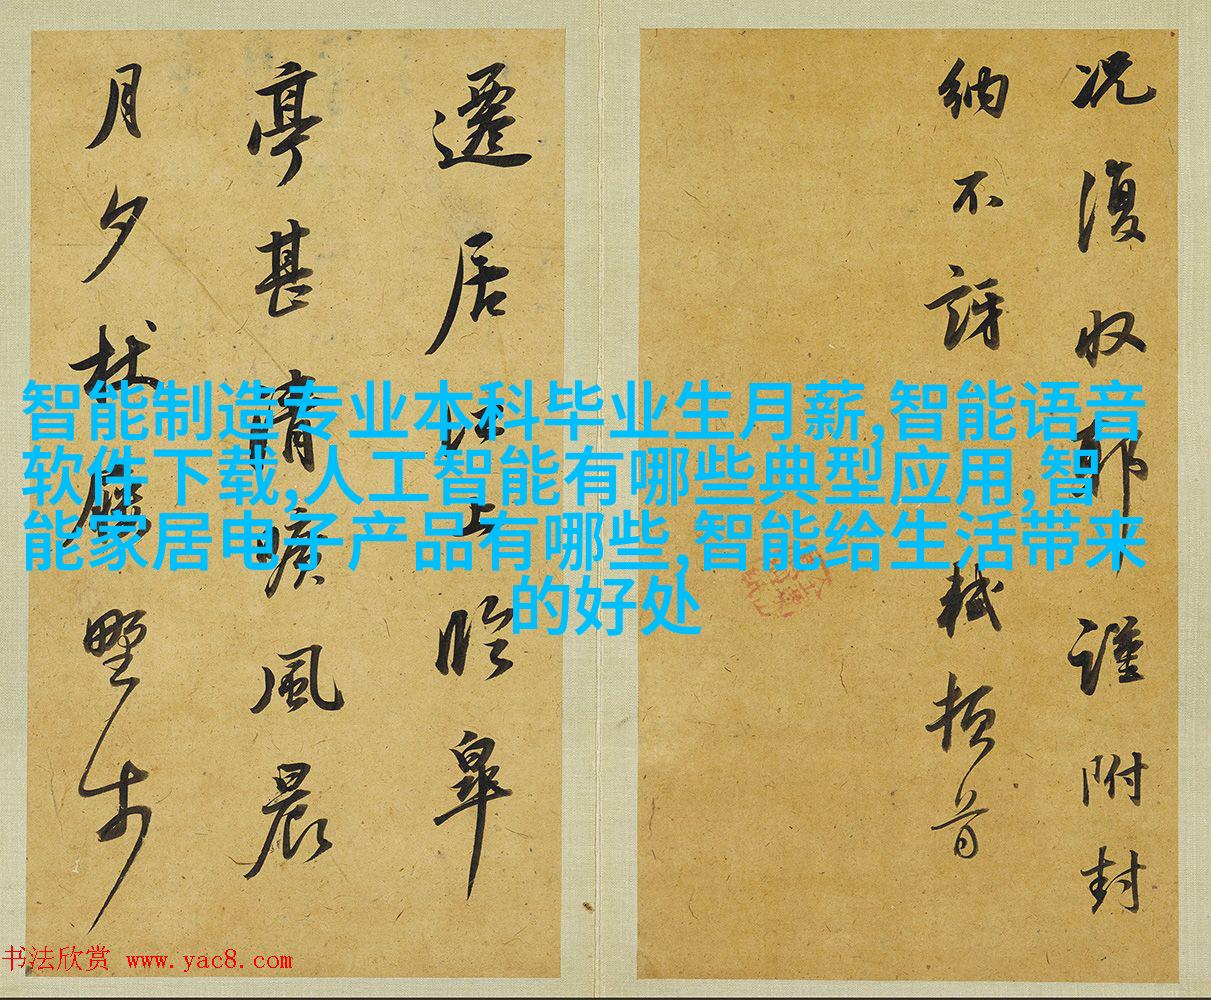 况復收耶謹附封
納不訝軾頓首
遷居江上臨皋
亭甚清曠風晨
月夕杖屨野步
智能制造专业本科毕业生月薪,智能语音
软件下载,人工智能有哪些典型应用,智
能家居电子产品有哪些,智能给生活带来
的好处
书法欣赏 www.yac8.com